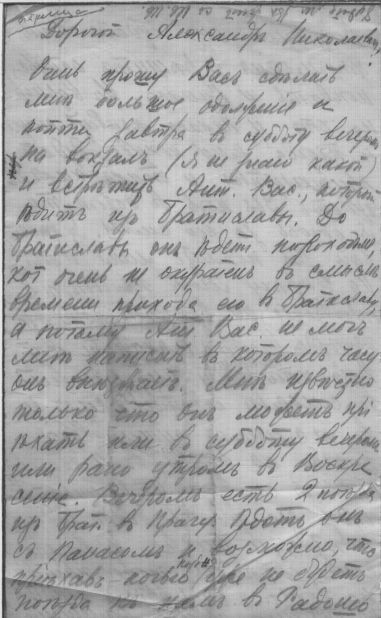 Дорогой Александръ Николаевичъ,
Очень прошу Васъ сдѣлать
мнѣ большое одолженіе и
пойти завтра въ субботу вечеромъ
на вокзалъ (я не знаю какой)
и встрѣтить Ант. Вас., который
ѣдитъ изъ Братиславы. До
Братиславы онъ ѣдетъ пароходомъ,
кот очень не въ смыслѣ
времени прихода его въ Братиславу,
а потому Ант Вас не могъ
мнѣ написать въ которомъ часу
онъ выѣзжаетъ. Мнѣ извѣстно
только что онъ можетъ прі
ѣхать или въ субботу вечеромъ
или рано утромъ въ Воскре
сеніе. Вечеромъ есть 2 поѣзда
изъ Брат. въ Прагу. Ѣдетъ онъ
съ Панасомъ и возможно, что
пріѣхавъ ночью уже не будетъ
поѣзда къ намъ въ